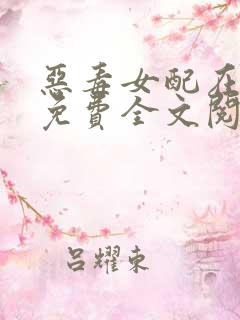 惡毒女配在
免費全文閱
吕耀東